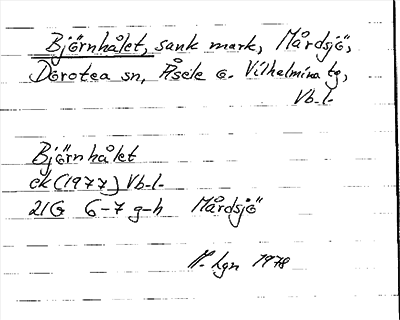 Björnhålet, sank mark, Mårdsjö,
Dorotea sn, Åsele o. Vilhelmina tg,
Vb-l.
Björnhålet
ek (1977) Vb-l.
21G 6-7 g-h Mårdsjö
lgn 1978